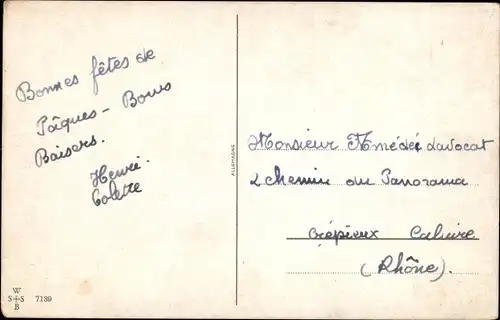 Bonnes fêtes de
Pâques - Bons
Baisers.
Henri.
Colette
ALLEMAGNE
Monsieur Amédée davocat
2 chemin du Panorama
Crépieux Caluire
(Rhône).
W
S + S
B
7139